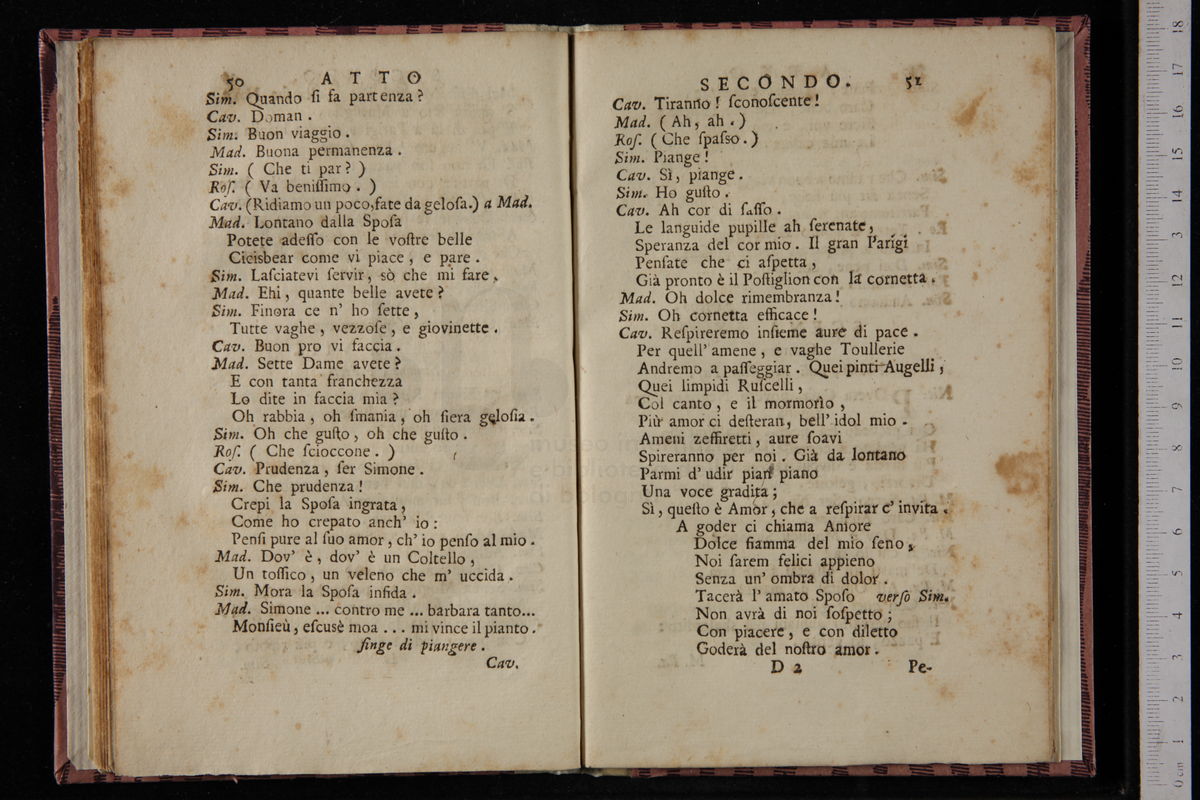 50 ATTO
Sim. Quando ſi fa partenza?
Cav. Doman.
Sim. Buon viaggio.
Mad. Buona permanenza.
Sim. (Che ti par?)
Roſ. (Va beniſſimo.)
Cav. (Ridiamo un poco, fate da geloſa.) a Mad.
Mad. Lontano dalla Spoſa
Potete adeſſo con le voſtre belle
Cicisbear come vi piace, e pare.
Sim. Laſciatevi ſervir, sò che mi fare.
Mad. Ehi, quante belle avete?
Sim. Finora ce n' ho ſette,
Tutte vaghe, vezzoſe, e giovinette.
Cav. Buon pro vi faccia.
Mad. Sette Dame avete?
E con tanta franchezza
Lo dite in faccia mia?
Oh rabbia, oh ſmania, oh fiera geloſia.
Sim. Oh che guſto, oh che guſto.
Roſ. (Che ſcioccone.)
Cav. Prudenza, ſer Simone.
Sim. Che prudenza!
Crepi la Spoſa ingrata,
Come ho crepato anch' io:
Penſi pure al ſuo amor, ch' io penſo al mio.
Mad. Dov' è, dov' è un Coltello,
Un toſſico, un veleno che m' uccida.
Sim. Mora la Spoſa infida.
Mad. Simone ... contro me ... barbara tanto...
Monſieù, eſcusè moa ... mi vince il pianto.
finge di piangere.
Cav.
SECONDO. 51
Cav. Tiranno! ſconoſcente!
Mad. (Ah, ah.)
Roſ. (Che ſpaſso.)
Sim. Piange!
Cav. Sì, piange.
Sim. Ho guſto.
Cav. Ah cor di ſaſſo.
Le languide pupille ah ſerenate,
Speranza del cor mio. Il gran Parigi
Penſate che ci aſpetta,
Già pronto è il Poſtiglion con la cornetta.
Mad. Oh dolce rimembranza!
Sim. Oh cornetta efficace!
Cav. Reſpireremo inſieme aure di pace.
Per quell' amene, e vaghe Toullerie
Andremo a paſſeggiar. Quei pinti Augelli,
Quei limpidi Ruſcelli,
Col canto, e il mormorìo,
Più amor ci deſteran, bell' idol mio.
Ameni zeffiretti, aure ſoavi
Spireranno per noi. Già da lontano
Parmi d' udir pian piano
Una voce gradita;
Sì, queſto è Amor, che a reſpirar c' invita.
A goder ci chiama Amore
Dolce fiamma del mio ſeno,
Noi ſarem felici appieno
Senza un' ombra di dolor.
Tacerà l' amato Spoſo verſo Sim.
Non avrà di noi ſoſpetto;
Con piacere, e con diletto
Goderà del noſtro amor.
D 2 Pe-
0 cm 1 2 3 4 5 6 7 8 9 10 11 12 13 14 15 16 17 18